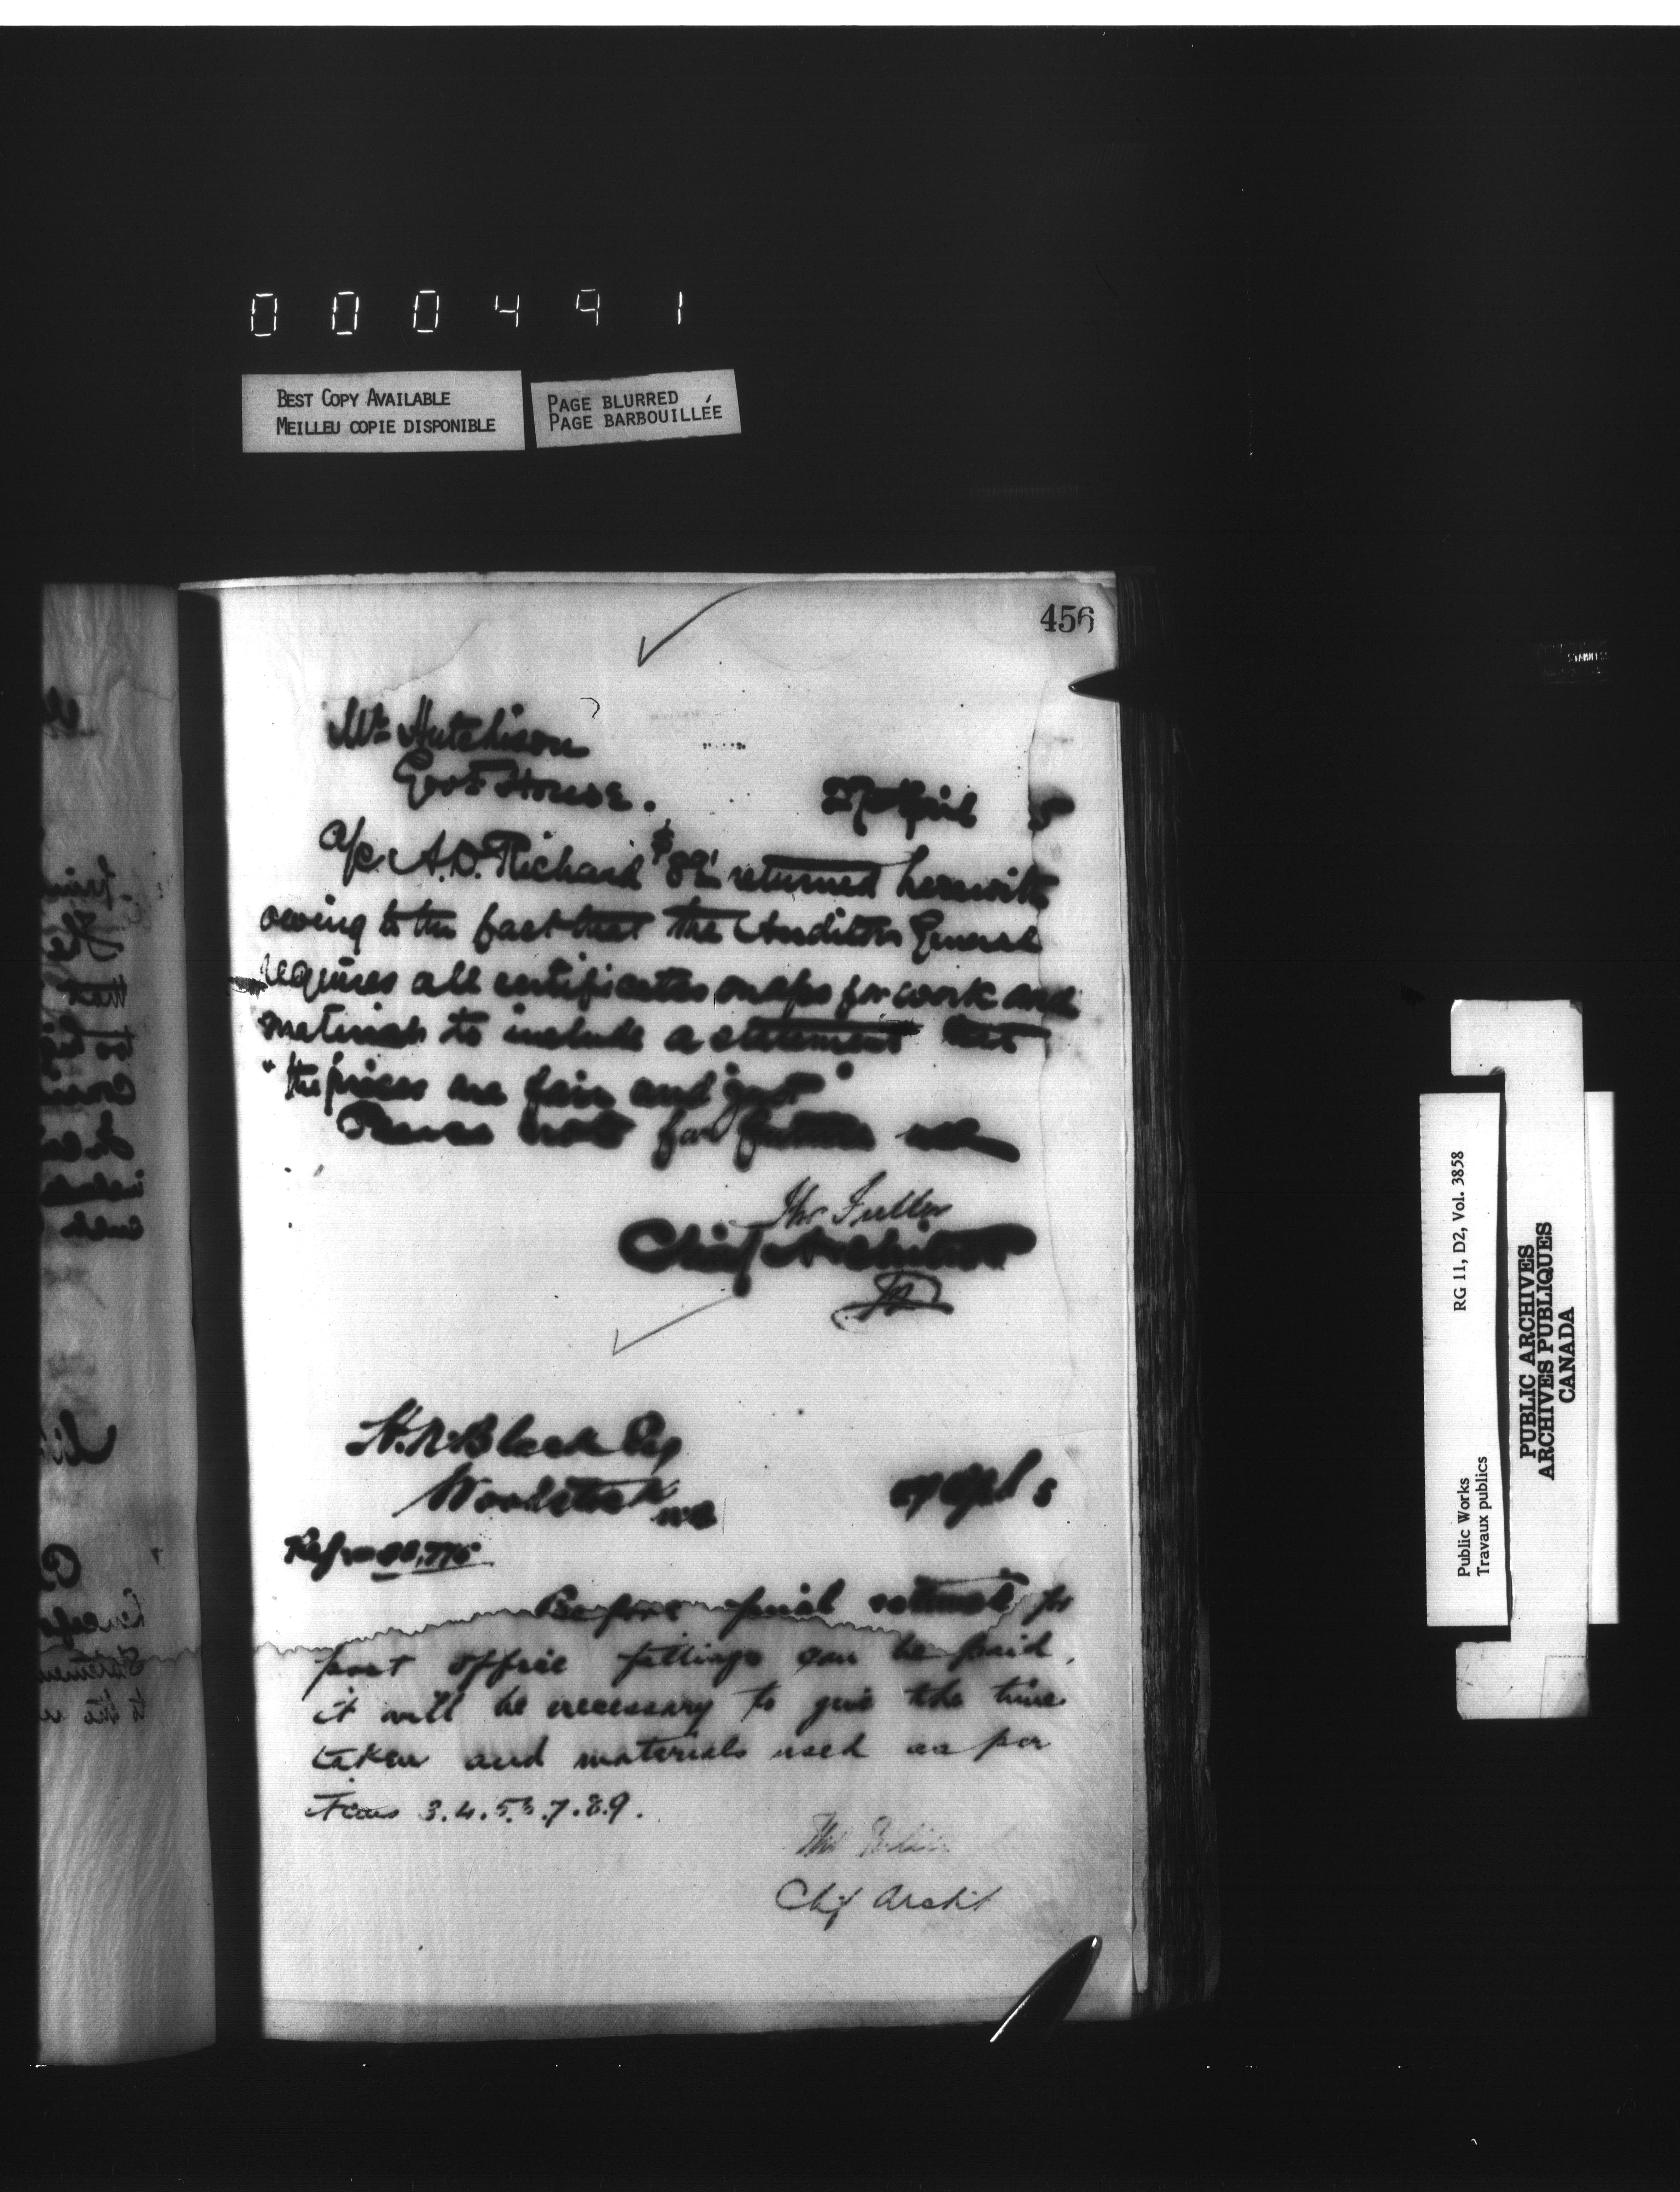 000491
BEST COPY AVAILABLE
MEILLEU COPIE DISPONIBLE
PAGE BLURRED
PAGE BARBOUILLÉE
456
Mr Hutchison
Govt House.
27 April 5
a/c A.D. Richard $ returned herewith
owing to the fact that the Auditor General
requires all certificates on a/cs for work and
materials to include a statement that
"the prices are fair and just"
Please note for future
Thos Fuller
Chief Architect
H. Black Esq
Woodstock NB
27 Apl 5
Ref
Before final estimate for
post office fittings can be paid,
it will be necessary to give the time
taken and materials used as per
Items 3.4.5.6.7.8.9.
Thos Fuller
Chf Archt
Public Works
Travaux publics
RG 11, D2, Vol. 3858
PUBLIC ARCHIVES
ARCHIVES PUBLIQUES
CANADA